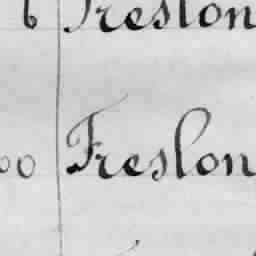 6 Freslon
00 Freslon